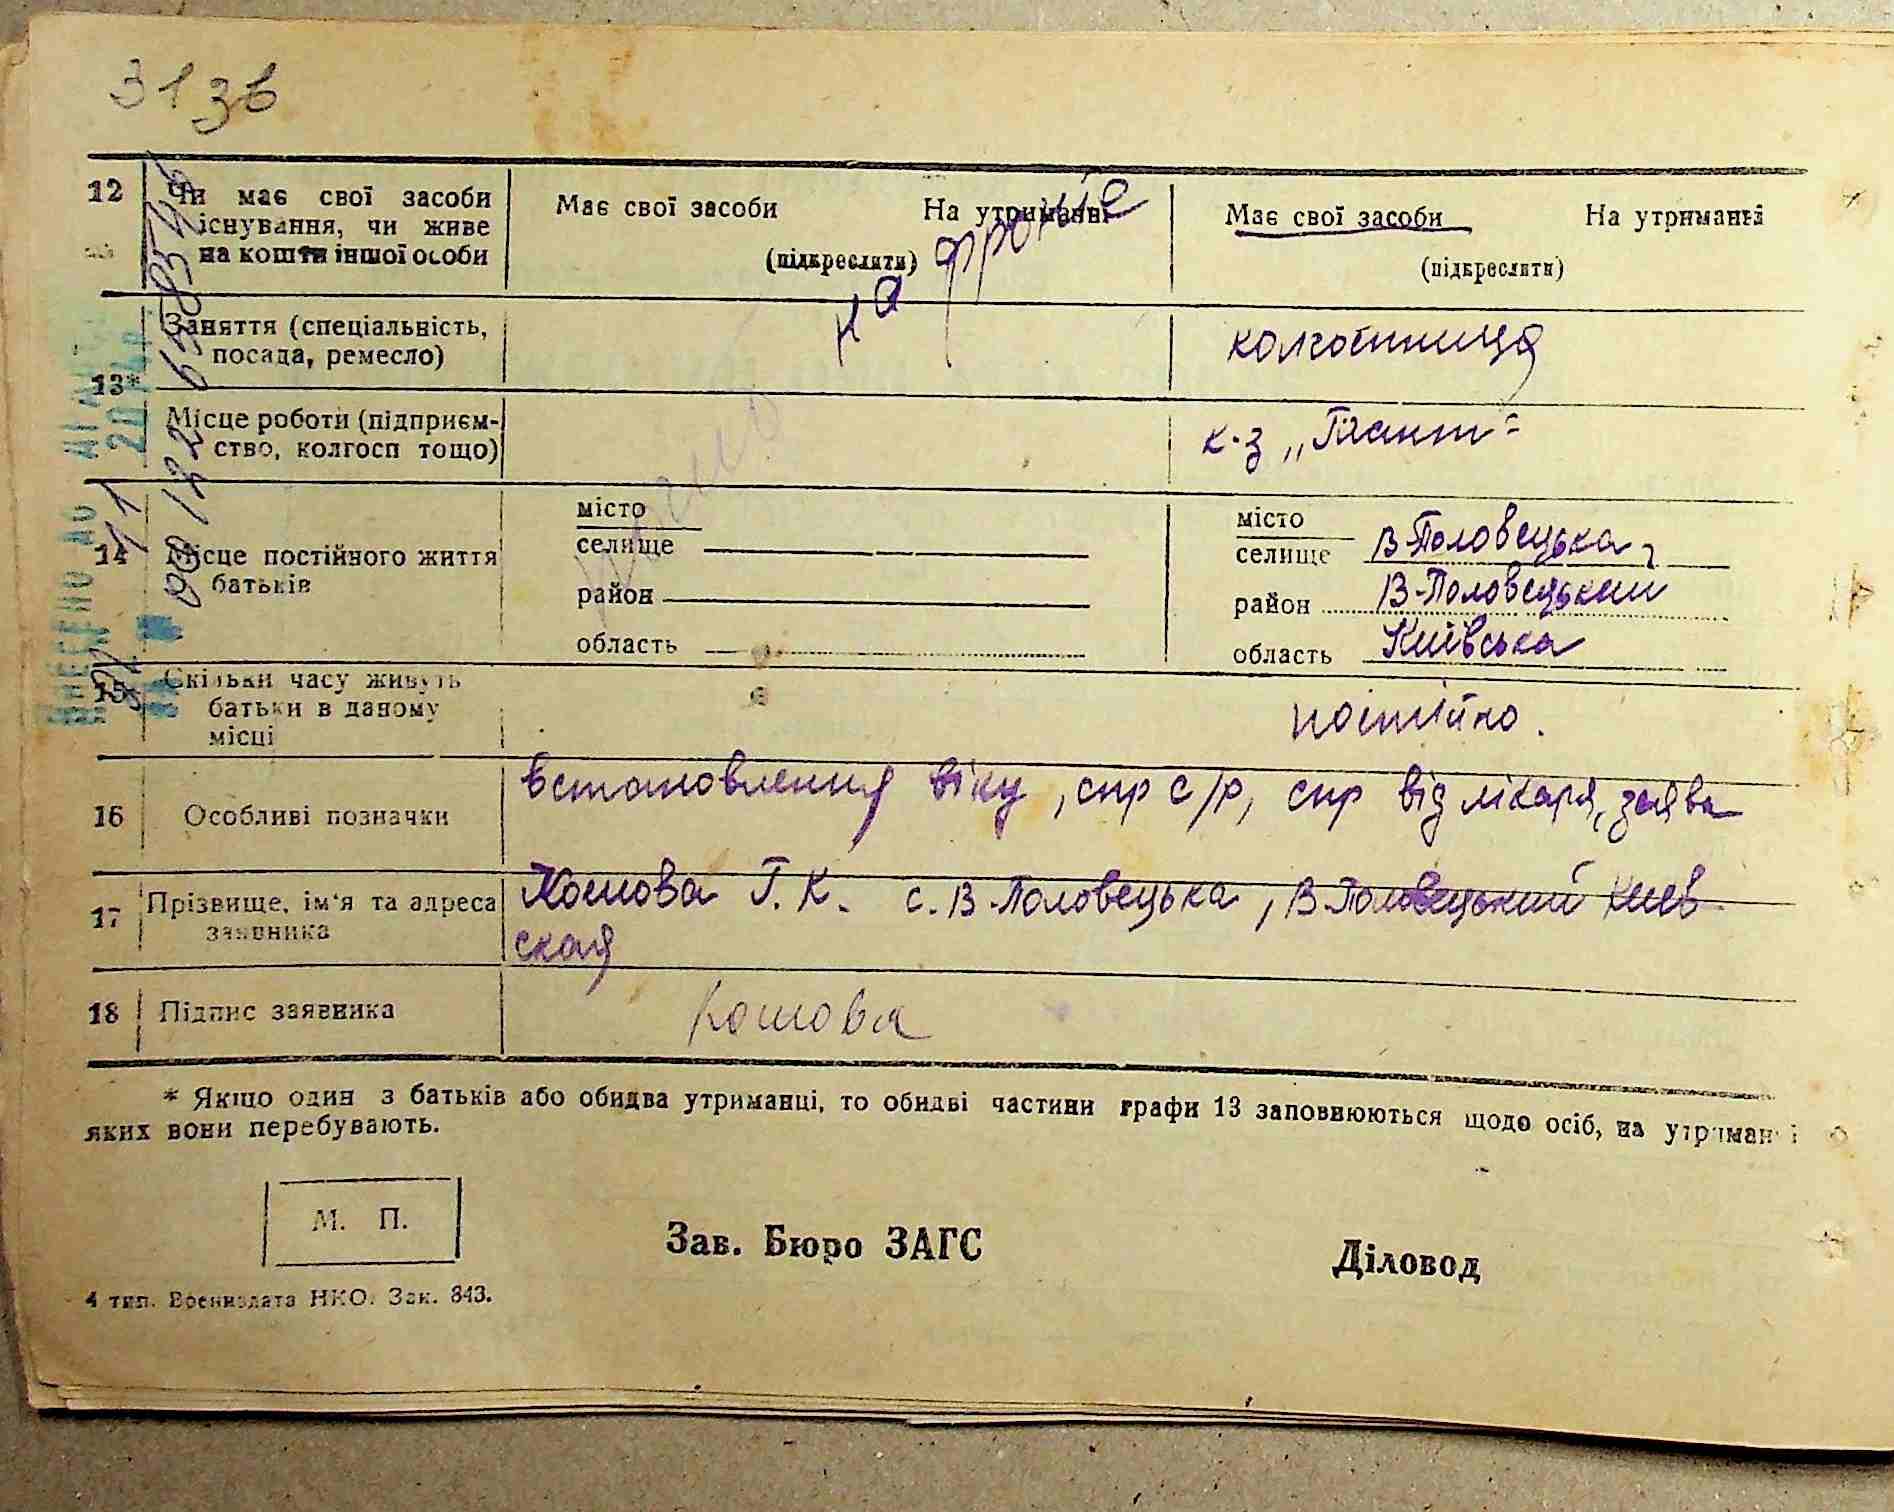 31 зв
12 Чи має свої засоби існування, чи живе на кошти іншої особи
Має свої засоби На утриманні
(підкреслити)
на фронте
Має свої засоби На утриманні
(підкреслити)
13* Заняття (спеціальність, посада, ремесло)
колгоспниця
Місце роботи (підприєм-
ство, колгосп тощо)
к-з „Гігант"
14 Місце постійного життя батьків
місто
селище
район
область
місто
селище В-Половецька,
район В-Половецький
область Київська
15 Скільки часу живуть батьки в даному місці
постійно.
16 Особливі позначки
встановлення віку, спр с/р, спр від лікаря, заява
17 Прізвище, ім'я та адреса заявника
Кошова Г. К. с. В-Половецька, В-Половецький Киев-
ская
18 Підпис заявника
Кошова
* Якщо один з батьків або обидва утриманці, то обидві частини графи 13 заповнюються щодо осіб, на утриманні
яких вони перебувають.
М. П.
Зав. Бюро ЗАГС
Діловод
4 тип. Воениздата НКО. Зак. 843.